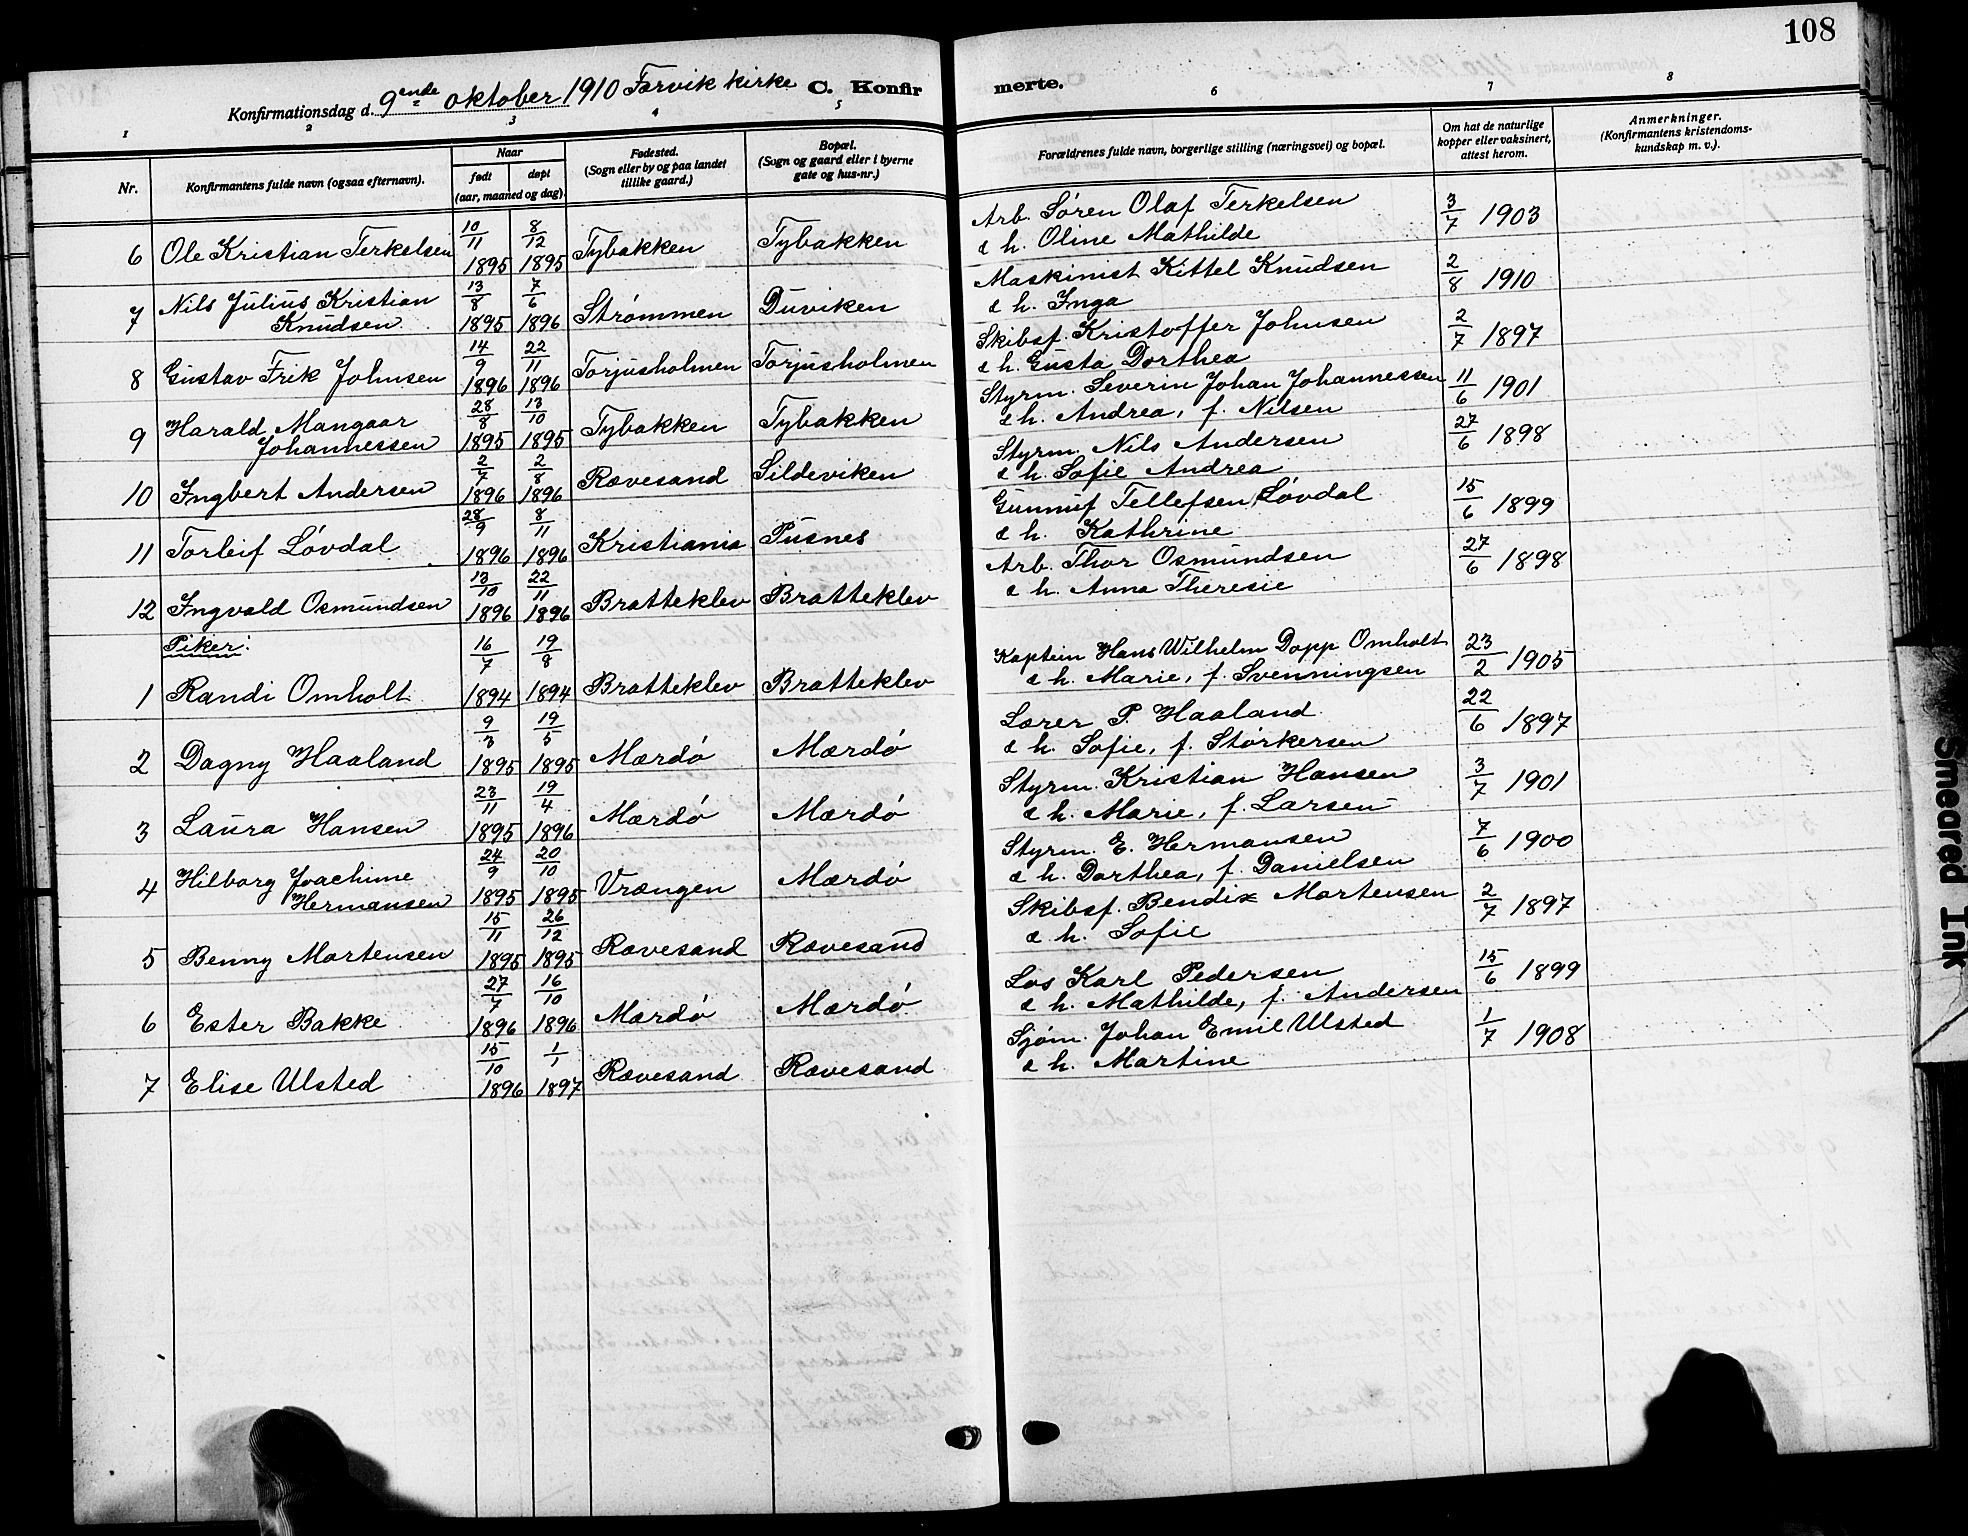 108
Konfirmationsdag d. 9ende oktober 1910 Færvik kirke C. Konfir merte.
1 2 3 4 5 6 7 8
Nr. Konfirmantens fulde navn (ogsaa efternavn). Naar født døpt (aar, maaned og dag). Fødested. (Sogn eller by og paa landet tillike gaard.) Bopæl. (Sogn og gaard eller i byerne gate og hus-nr.) Forældrenes fulde navn, borgerlige stilling (næringsvei) og bopæl. Om hat de naturlige kopper eller vaksinert, attest herom. Anmerkninger. (Konfirmantens kristendomskundskap m. v.).
6 Ole Kristian Terkelsen 10/11 1895 8/12 1895 Tybakken Tybakken Arb. Søren Olaf Terkelsen & h. Oline Mathilde 3/7 1903
7 Nils Julius Kristian Knudsen 13/8 1895 7/6 1896 Strømmen Duviken Maskinist Kittel Knudsen & h. Inga 2/8 1910
8 Gustav Frik Johnsen 14/9 1896 22/11 1896 Torjusholmen Torjusholmen Skibsf. Kristoffer Johnsen & h. Gusta Dorthea 2/7 1897
9 Harald Mangaar Johannessen 28/8 1895 13/10 1895 Tybakken Tybakken Styrm. Severin Johan Johannessen & h. Andrea, f. Nilsen 11/6 1901
10 Ingbert Andersen 2/7 1896 2/8 1896 Rævesand Sildeviken Styrm. Nils Andersen & h. Sofie Andrea 27/6 1898
11 Torleif Løvdal 28/9 1896 8/11 1896 Kristiania Pusnes Gunnuf Tellefsen Løvdal & h. Kathrine 15/6 1899
12 Ingvald Osmundsen 13/10 1896 22/11 1896 Bratteklev Bratteklev Arb. Thor Osmundsen & h. Anna Theresie 27/6 1898
Piker:
1 Randi Omholt 16/7 1894 19/8 1894 Bratteklev Bratteklev Kaptein Hans Wilhelm Dopp Omholt & h. Marie, f. Svenningsen 23/2 1905
2 Dagny Haaland 9/3 1895 19/5 1895 Mærdø Mærdø Lærer P. Haaland & h. Sofie, f. Størkersen 22/6 1897
3 Laura Hansen 23/11 1895 19/4 1896 Mærdø Mærdø Styrm. Kristian Hansen & h. Marie, f. Larsen 3/7 1901
4 Hilborg Joachime Hermansen 24/9 1895 20/10 1895 Vrængen Mærdø Styrm. E. Hermansen & h. Dorthea, f. Danielsen 7/6 1900
5 Benny Mortensen 15/11 1895 26/12 1895 Rævesand Rævesand Skibsf. Bendix Mortensen & h. Sofie 2/7 1897
6 Ester Bakke 27/7 1896 16/10 1896 Mærdø Mærdø Los Karl Pedersen & h. Mathilde, f. Andersen 15/6 1899
7 Elise Ulsted 15/10 1896 1/1 1897 Rævesand Rævesand Sjøm. Johan Emil Ulsted & h. Martine 1/7 1908
Smeared Ink